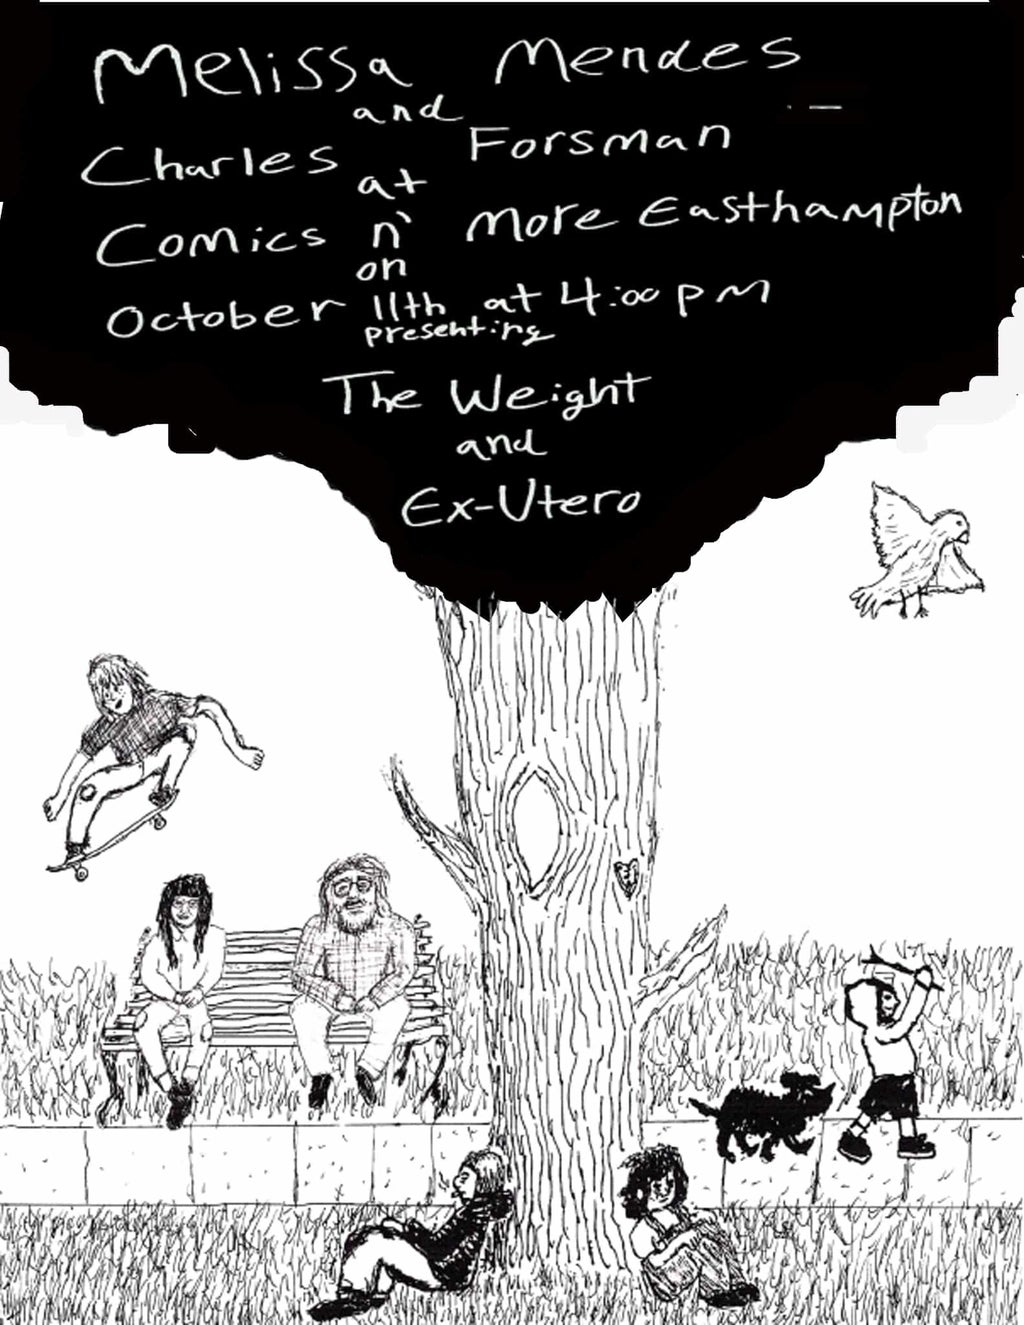 Melissa Mendes
and
Charles Forsman
at
Comics n' More Easthampton
on
October 11th at 4:00 pm
presenting
The Weight
and
Ex-Utero